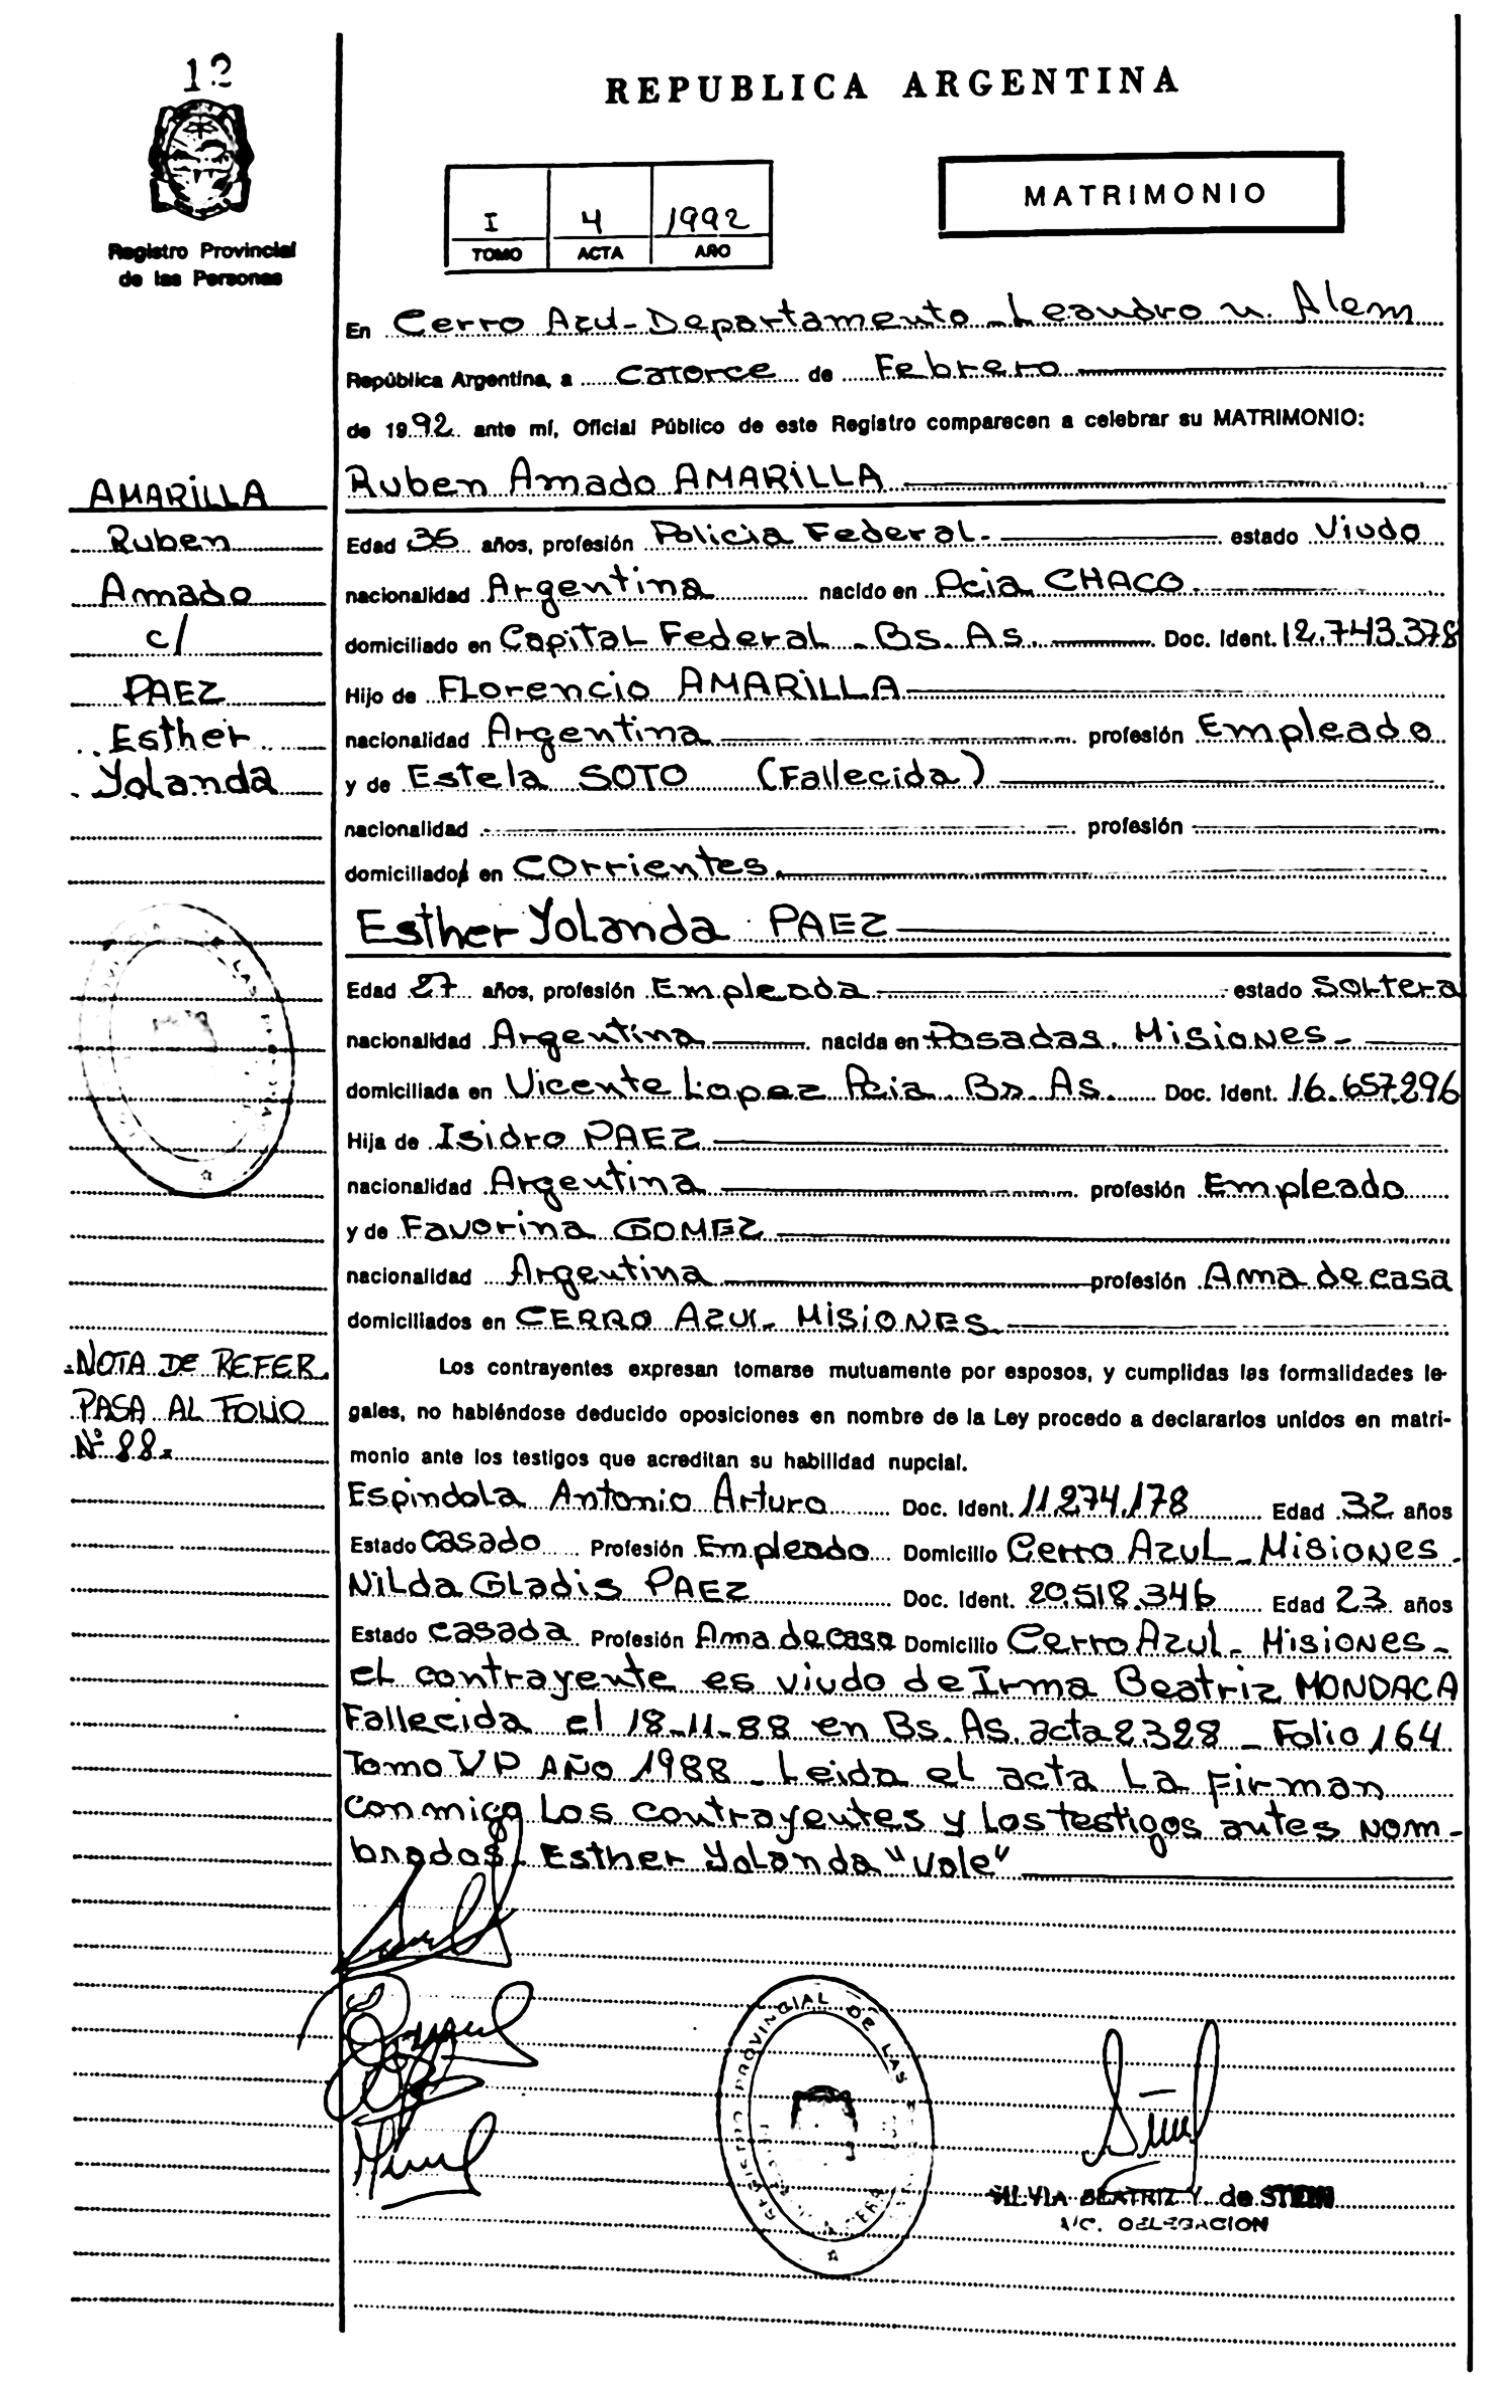 12
REPUBLICA ARGENTINA
Registro Provincial
de las Personas
I 4 1992
TOMO ACTA AÑO
MATRIMONIO
En Cerro Azul-Departamento-Leandro N. Alem
República Argentina, a Catorce de Febrero
de 1992 ante mí, Oficial Público de este Registro comparecen a celebrar su MATRIMONIO:
AMARILLA
Ruben
Amado
c/
PAEZ
Esther
Yolanda
Ruben Amado AMARILLA
Edad 35 años, profesión Policia Federal.- estado Viudo
nacionalidad Argentina nacido en Pcia CHACO
domiciliado en Capital Federal - Bs. As. Doc. Ident. 12.743.378
Hijo de Florencio AMARILLA
nacionalidad Argentina profesión Empleado
y de Estela SOTO (Fallecida)
nacionalidad profesión
domiciliados en Corrientes
Esther Yolanda PAEZ
Edad 27 años, profesión Empleada estado Soltera
nacionalidad Argentina nacida en Posadas. Misiones-
domiciliada en Vicente Lopez Pcia. Bs. As. Doc. Ident. 16.657.296
Hija de Isidro PAEZ
nacionalidad Argentina profesión Empleado
y de Favorina GOMEZ
nacionalidad Argentina profesión Ama de casa
domiciliados en CERRO AZUL- MISIONES
NOTA DE REFER.
PASA AL FOLIO
Nº 88.
Los contrayentes expresan tomarse mutuamente por esposos, y cumplidas las formalidades le-
gales, no habiéndose deducido oposiciones en nombre de la Ley procedo a declararlos unidos en matri-
monio ante los testigos que acreditan su habilidad nupcial.
Espindola Antonio Arturo Doc. Ident. 11.274.178 Edad 32 años
Estado Casado Profesión Empleado Domicilio Cerro Azul- Misiones.
Nilda Gladis PAEZ Doc. Ident. 20.518.346 Edad 23 años
Estado Casada Profesión Ama de casa Domicilio Cerro Azul- Misiones-
el contrayente es viudo de Irma Beatriz MONDACA
Fallecida el 18-11-88 en Bs. As. acta 2.328 - Folio 164
Tomo VP Año 1988 - Leida el acta La Firman
conmigo Los contrayentes y los testigos antes nom-
brados. Esther Yolanda "vale"
REGISTRO PROVINCIAL DE LAS
SILVIA BEATRIZ Y. de STEIN
A/C. DELEGACION